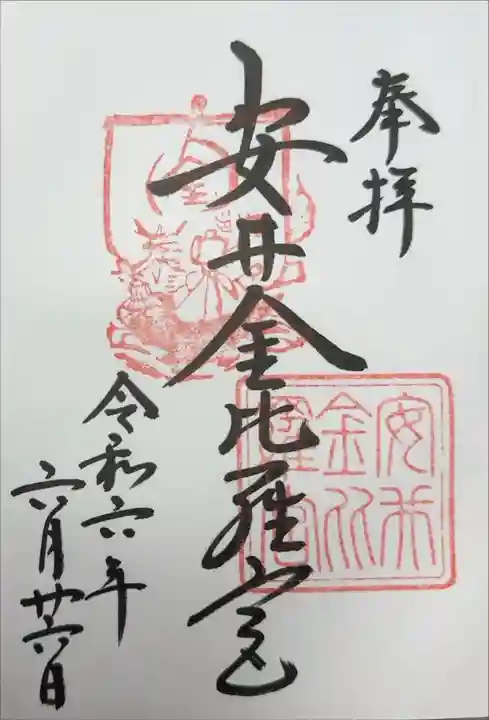 奉拝
安井金比羅宮
安井金比羅宮
金
令和六年
六月廿六日